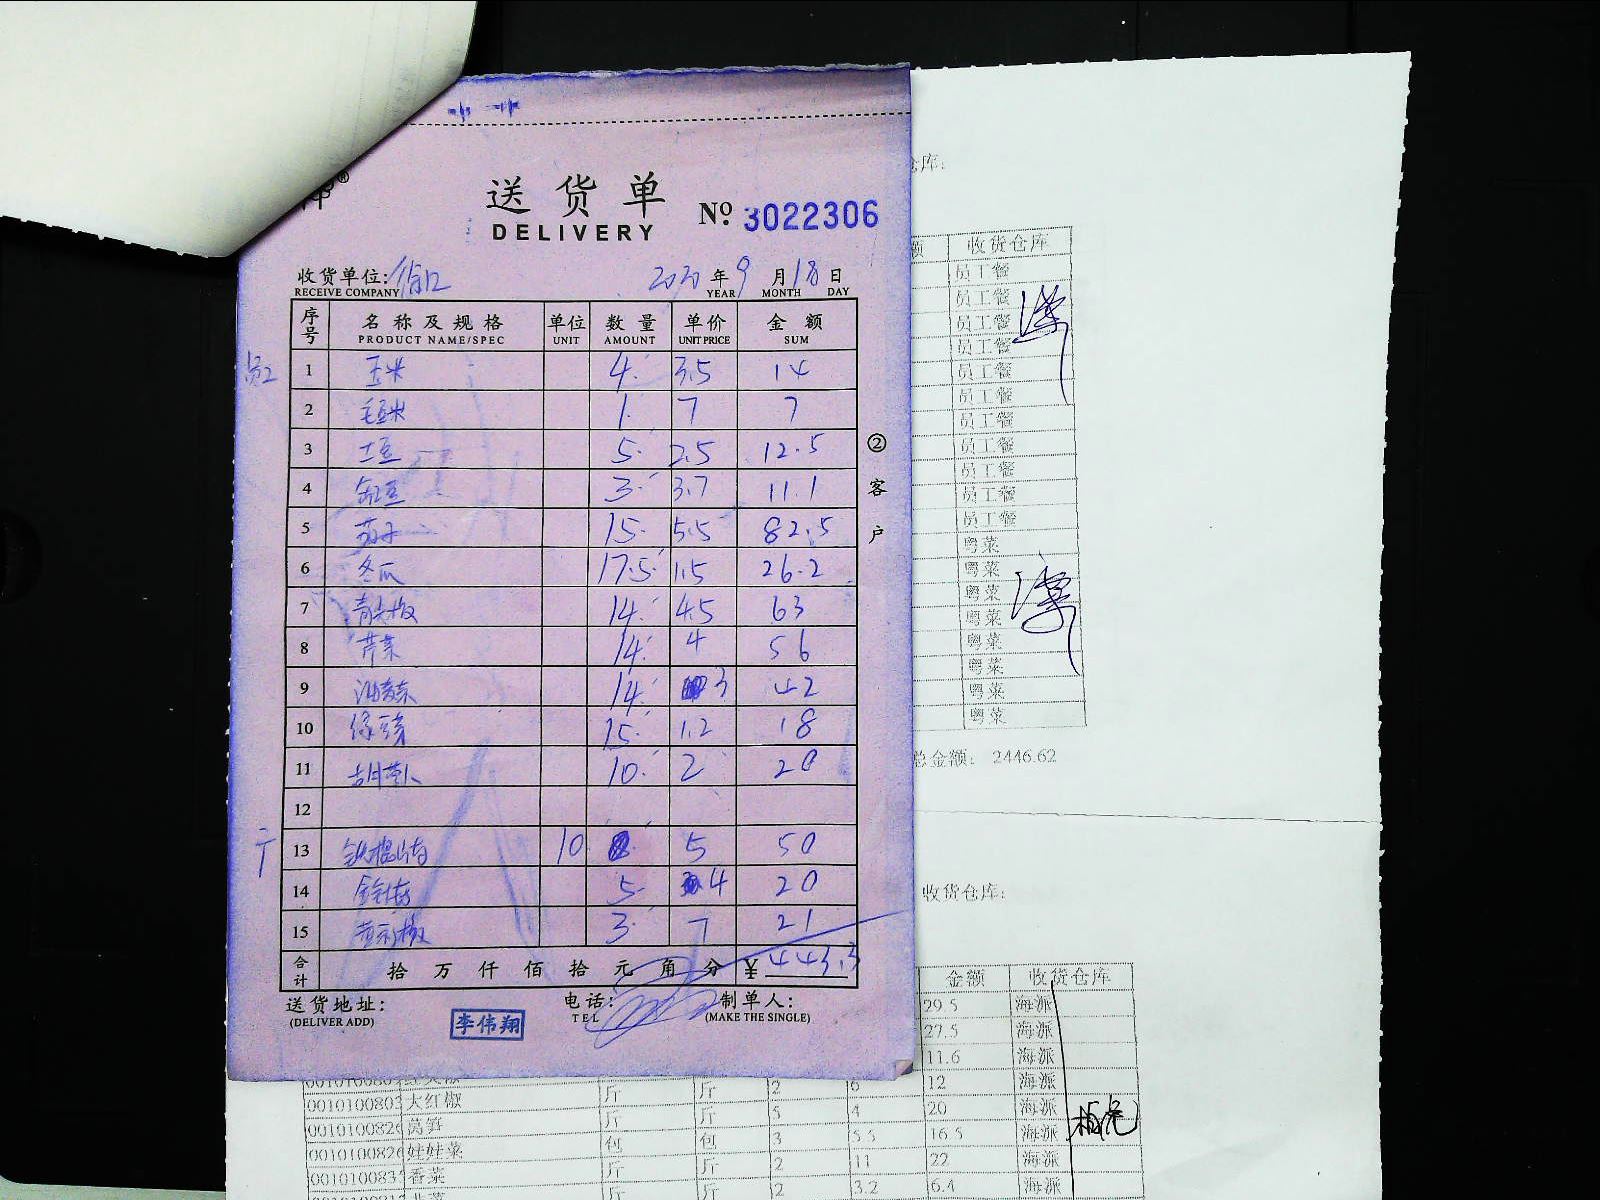 送货单
DELIVERY
№ 3022306
收货单位:
RECEIVE COMPANY
2020 年 9 月 18 日
YEAR MONTH DAY
序号 名称及规格 单位 数量 单价 金额
PRODUCT NAME/SPEC UNIT AMOUNT UNIT PRICE SUM
员工
1 玉米 4 3.5 14
2 毛豆米 1 7 7
3 土豆 5 2.5 12.5
4 豆 3 3.7 11.1
5 茄子 15 5.5 82.5
6 冬瓜 17.5 1.5 26.2
7 青尖椒 14 4.5 63
8 芹菜 14 4 56
9 14 3 42
10 绿豆芽 15 1.2 18
11 胡萝卜 10 2 20
12
13 铁棍山药 10 5 50
14 5 4 20
15 3 7 21
合计 拾万仟佰拾元角分 ¥ 443.3
送货地址:
(DELIVER ADD)
李伟翔
电话:
TEL
制单人:
(MAKE THE SINGLE)
②客户
仓库:
额 收货仓库
员工餐
员工餐
员工餐
员工餐
员工餐
员工餐
员工餐
员工餐
员工餐
员工餐
员工餐
粤菜
粤菜
粤菜
粤菜
粤菜
粤菜
粤菜
粤菜
总金额: 2446.62
收货仓库:
金额 收货仓库
29.5 海派
27.5 海派
11.6 海派
2 6 12 海派
大红椒 斤 斤 5 4 20 海派
莴笋 斤 斤 3 5.5 16.5 海派
娃娃菜 包 包 2 11 22 海派
香菜 斤 斤 2 3.2 6.4 海派